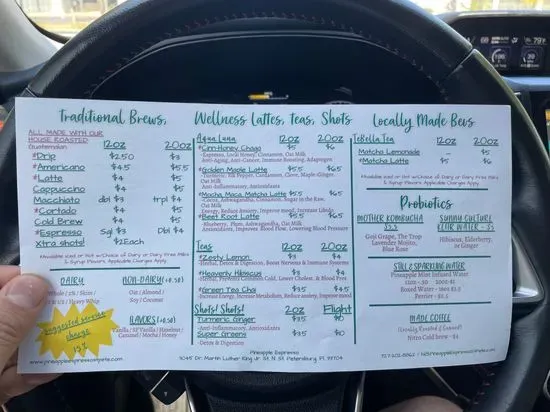 Traditional Brews,
ALL MADE WITH OUR
HOUSE ROASTED
Guatemalan 12oz 20oz
*Drip $2.50 $3
*Americano $4.5 $5.5
*Latte $4 $5
Cappuccino $4 $5
Macchiato dbl $3 trpl $4
*Cortado $4 $5
Cold Brew $4 $5
*Espresso Sgl $3 Dbl $4
Xtra shots! $2Each
*Available iced or hot w/Choice of Dairy or Dairy Free Milks
& Syrup Flavors. Applicable Charges Apply
DAIRY
Whole / 2% / Skim /
Heavy Whip
NON-DAIRY(+0.50)
Oat / Almond /
Soy / Coconut
FLAVORS(+0.50)
Vanilla / SF Vanilla / Hazelnut /
Caramel / Mocha / Honey
Suggested service
charge
15%
www.pineappleespressostpete.com
Wellness Lattes, Teas, Shots
Agua Luna 12oz 20oz
*Cinn-Honey Chaga $5 $6
-Espresso, Local Honey, Cinnamon, Oat Milk
Anti-Aging, Anti-Cancer, Immune Boosting, Adaptogen
*Golden Maple Latte $5.5 $6.5
-Turmeric, Black Pepper, Cardamom, Clove, Maple, Ginger,
Oat Milk
Anti-Inflammatory, Antioxidants
*Mocha Maca Matcha Latte $5.5 $6.5
-Cacao, Ashwagandha, Cinnamon, Sugar in the Raw,
Oat Milk
Energy, Reduce Anxiety, Improve mood, Increase Libido
*Beet Root Latte $5.5 $6.5
Blueberry, Plum, Ashwagandha, Oat Milk
Antioxidants, Improves Blood Flow, Lowering Blood Pressure
Teas 12oz 20oz
*Zesty Lemon $3 $4
-Herbal, Detox & Digestion, Boost Nerves & Immune Systems
*Heavenly Hibiscus $3 $4
-Herbal, Prevents Common Cold, Lower Cholest. & Blood Fres
*Green Tea Chai $3.5 $4.5
-Increase Energy, Increase Metabolism, Reduce anxiety, Improve mood
Shots! Shots! 2oz Flight
Turmeric Ginger $3.5 $10
-Anti-Inflammatory, Antioxidants
Super Greens $3.5 $10
-Detox & Digestion
Pineapple Espresso
3045 Dr. Martin Luther King Jr St. N St. Petersburg FL 33704
Locally Made Bevs
TeBella Tea 12oz 20oz
Matcha Lemonade - $5
*Matcha Latte $5 $6
*Available iced or hot w/Choice of Dairy or Dairy Free Milks
& Syrup Flavors. Applicable Charges Apply
Probiotics
MOTHER KOMBUCHA
Goji Grape, The Trop
Lavender Mojito,
Blue Rose
SUNNY CULTURE
KEFIR WATER - $5
Hibiscus, Elderberry,
Ginger
STILL & SPARKLING WATER
Pineapple Mint Infused Water
Boxed Water
Perrier
MADE COFFEE
(Locally Roasted & Canned)
Nitro Cold brew -